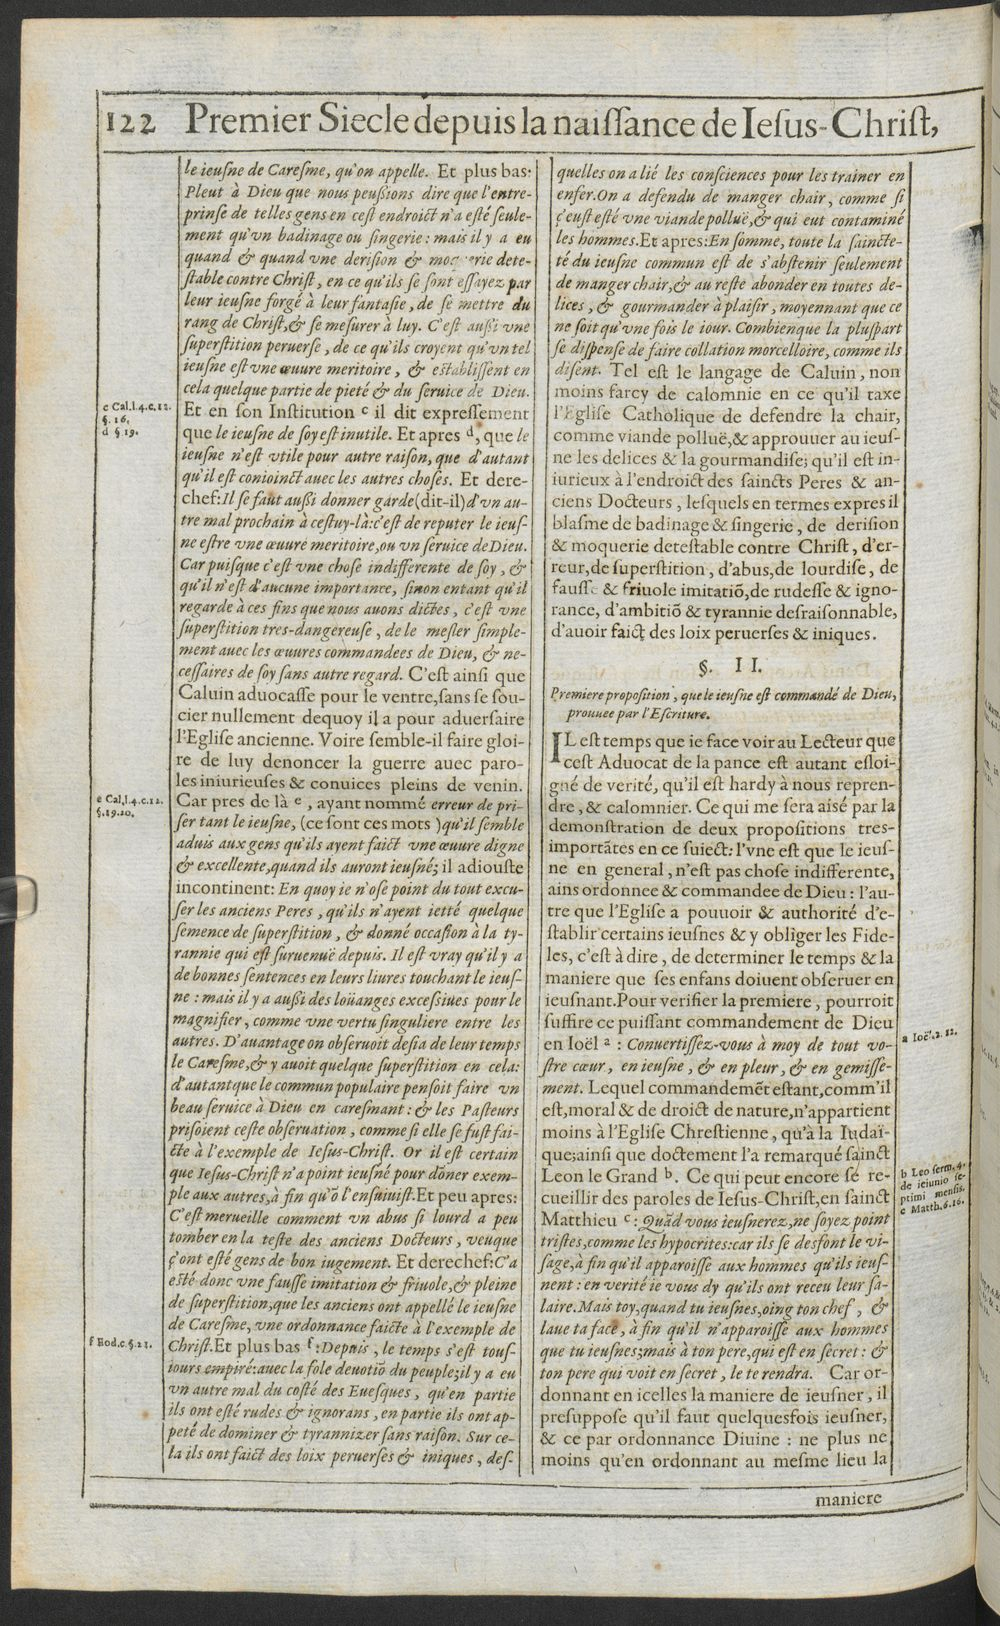 122 Premier Siecle depuis la naiſſance de Ieſus-Chriſt,
le ieuſne de Careſme, qu'on appelle. Et plus bas:
Pleut à Dieu que nous peuſſions dire que l'entre-
prinſe de telles gens en ceſt endroict n'a eſté ſeule-
ment qu'vn badinage ou ſingerie: mais il y a eu
quand & quand vne deriſion & mocquerie dete-
ſtable contre Chriſt, en ce qu'ils ſe ſont eſſayez par
leur ieuſne forgé à leur fantaſie, de ſe mettre du
rang de Chriſt,& ſe meſurer à luy. C'eſt auſſi vne
ſuperſtition peruerſe, de ce qu'ils croyent qu'vn tel
ieuſne eſt vne œuure meritoire, & eſtabliſſent en
cela quelque partie de pieté & du ſeruice de Dieu.
Et en ſon Inſtitution c il dit expreſſement
que le ieuſne de ſoy eſt inutile. Et apres d, que le
ieuſne n'eſt vtile pour autre raiſon, que d'autant
qu'il eſt conioinct auec les autres choſes. Et dere-
chef: Il ſe faut auſſi donner garde (dit-il) d'vn au-
tre mal prochain à ceſtuy-là: c'eſt de reputer le ieuſ-
ne eſtre vne œuure meritoire, ou vn ſeruice de Dieu.
Car puiſque c'eſt vne choſe indifferente de ſoy, &
qu'il n'eſt d'aucune importance, ſinon entant qu'il
regarde à ces fins que nous auons dictes, c'eſt vne
ſuperſtition tres-dangereuſe, de le meſler ſimple-
ment auec les œuures commandees de Dieu, & ne-
ceſſaires de ſoy ſans autre regard. C'eſt ainſi que
Caluin aduocaſſe pour le ventre, ſans ſe ſou-
cier nullement dequoy il a pour aduerſaire
l'Egliſe ancienne. Voire ſemble-il faire gloi-
re de luy denoncer la guerre auec paro-
les iniurieuſes & conuices pleins de venin.
Car pres de là e, ayant nommé erreur de pri-
ſer tant le ieuſne, (ce ſont ces mots) qu'il ſemble
aduis aux gens qu'ils ayent faict vne œuure digne
& excellente, quand ils auront ieuſné; il adiouſte
incontinent: En quoy ie n'oſe point du tout excu-
ſer les anciens Peres, qu'ils n'ayent ietté quelque
ſemence de ſuperſtition, & donné occaſion à la ty-
rannie qui eſt ſuruenuë depuis. Il eſt vray qu'il y a
de bonnes ſentences en leurs liures touchant le ieuſ-
ne: mais il y a auſſi des loüanges exceſſiues pour le
magnifier, comme vne vertu ſinguliere entre les
autres. D'auantage on obſeruoit deſia de leur temps
le Careſme,& y auoit quelque ſuperſtition en cela:
d'autant que le commun populaire penſoit faire vn
beau ſeruice à Dieu en careſmant: & les Paſteurs
priſoient ceſte obſeruation, comme ſi elle ſe fuſt fai-
cte à l'exemple de Ieſus-Chriſt. Or il eſt certain
que Ieſus-Chriſt n'a point ieuſné pour dõner exem-
ple aux autres, à fin qu'õ l'enſuiuiſt. Et peu apres:
C'eſt merueille comment vn abus ſi lourd a peu
tomber en la teſte des anciens Docteurs, veuque
ç'ont eſté gens de bon iugement. Et derechef: C'a
eſté donc vne fauſſe imitation & friuole,& pleine
de ſuperſtition, que les anciens ont appellé le ieuſne
de Careſme, vne ordonnance faicte à l'exemple de
Chriſt. Et plus bas f: Depuis, le temps s'eſt touſ-
iours empiré: auec la fole deuotiõ du peuple; il y a eu
vn autre mal du coſté des Eueſques, qu'en partie
ils ont eſté rudes & ignorans, en partie ils ont ap-
peté de dominer & tyrannizer ſans raiſon. Sur ce-
la ils ont faict des loix peruerſes & iniques, deſ-
c Cal.l.4.c.12.
§. 16.
d §. 19.
e Cal.l.4.c.12.
§.19.20.
f Eod.c.§.21.
quelles on a lié les conſciences pour les trainer en
enfer. On a defendu de manger chair, comme ſi
ç'euſt eſté vne viande polluë,& qui eut contaminé
les hommes. Et apres: En ſomme, toute la ſaincte-
té du ieuſne commun eſt de s'abſtenir ſeulement
de manger chair,& au reſte abonder en toutes de-
lices, & gourmander à plaiſir, moyennant que ce
ne ſoit qu'vne fois le iour. Combienque la pluſpart
ſe diſpenſe de faire collation morcelloire, comme ils
diſent. Tel eſt le langage de Caluin, non
moins farcy de calomnie en ce qu'il taxe
l'Egliſe Catholique de defendre la chair,
comme viande polluë,& approuuer au ieuſ-
ne les delices & la gourmandiſe; qu'il eſt in-
iurieux à l'endroict des ſaincts Peres & an-
ciens Docteurs, leſquels en termes expres il
blaſme de badinage & ſingerie, de deriſion
& moquerie deteſtable contre Chriſt, d'er-
reur, de ſuperſtition, d'abus, de lourdiſe, de
fauſſe & friuole imitatiõ, de rudeſſe & igno-
rance, d'ambitiõ & tyrannie deſraiſonnable,
d'auoir faict des loix peruerſes & iniques.
§. II.
Premiere propoſition, que le ieuſne eſt commandé de Dieu,
prouuee par l'Eſcriture.
IL eſt temps que ie face voir au Lecteur que
ceſt Aduocat de la pance eſt autant eſloi-
gné de verité, qu'il eſt hardy à nous repren-
dre, & calomnier. Ce qui me ſera aisé par la
demonſtration de deux propoſitions tres-
importãtes en ce ſuiect: l'vne eſt que le ieuſ-
ne en general, n'eſt pas choſe indifferente,
ains ordonnee & commandee de Dieu: l'au-
tre que l'Egliſe a pouuoir & authorité d'e-
ſtablir certains ieuſnes & y obliger les Fide-
les, c'eſt à dire, de determiner le temps & la
maniere que ſes enfans doiuent obſeruer en
ieuſnant. Pour verifier la premiere, pourroit
ſuffire ce puiſſant commandement de Dieu
en Ioël a: Conuertiſſez-vous à moy de tout vo-
ſtre cœur, en ieuſne, & en pleur, & en gemiſſe-
ment. Lequel commandemẽt eſtant, comm'il
eſt, moral & de droict de nature, n'appartient
moins à l'Egliſe Chreſtienne, qu'à la Iudaï-
que; ainſi que doctement l'a remarqué ſainct
Leon le Grand b. Ce qui peut encore ſe re-
cueillir des paroles de Ieſus-Chriſt, en ſainct
Matthieu c: Quãd vous ieuſnerez, ne ſoyez point
triſtes, comme les hypocrites: car ils ſe desfont le vi-
ſage, à fin qu'il apparoiſſe aux hommes qu'ils ieuſ-
nent: en verité ie vous dy qu'ils ont receu leur ſa-
laire. Mais toy, quand tu ieuſnes, oing ton chef, &
laue ta face, à fin qu'il n'apparoiſſe aux hommes
que tu ieuſnes; mais à ton pere, qui eſt en ſecret: &
ton pere qui voit en ſecret, le te rendra. Car or-
donnant en icelles la maniere de ieuſner, il
preſuppoſe qu'il faut quelquesfois ieuſner,
& ce par ordonnance Diuine: ne plus ne
moins qu'en ordonnant au meſme lieu la
a Ioël.2.12.
b Leo ſerm.4.
de ieiunio ſe-
ptimi menſis.
c Matth.6.16.
maniere